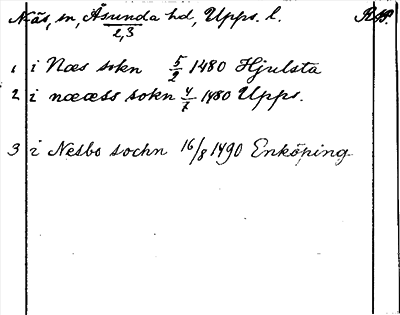 Näs, sn, Åsunda hd, Upps. l. RAP.
2,3
1 i Næs sokn 5/2 1480 Hjulsta
2 i næess sokn 4/7 1480 Upps.
3 i Nesbo sochn 16/8 1490 Enköping